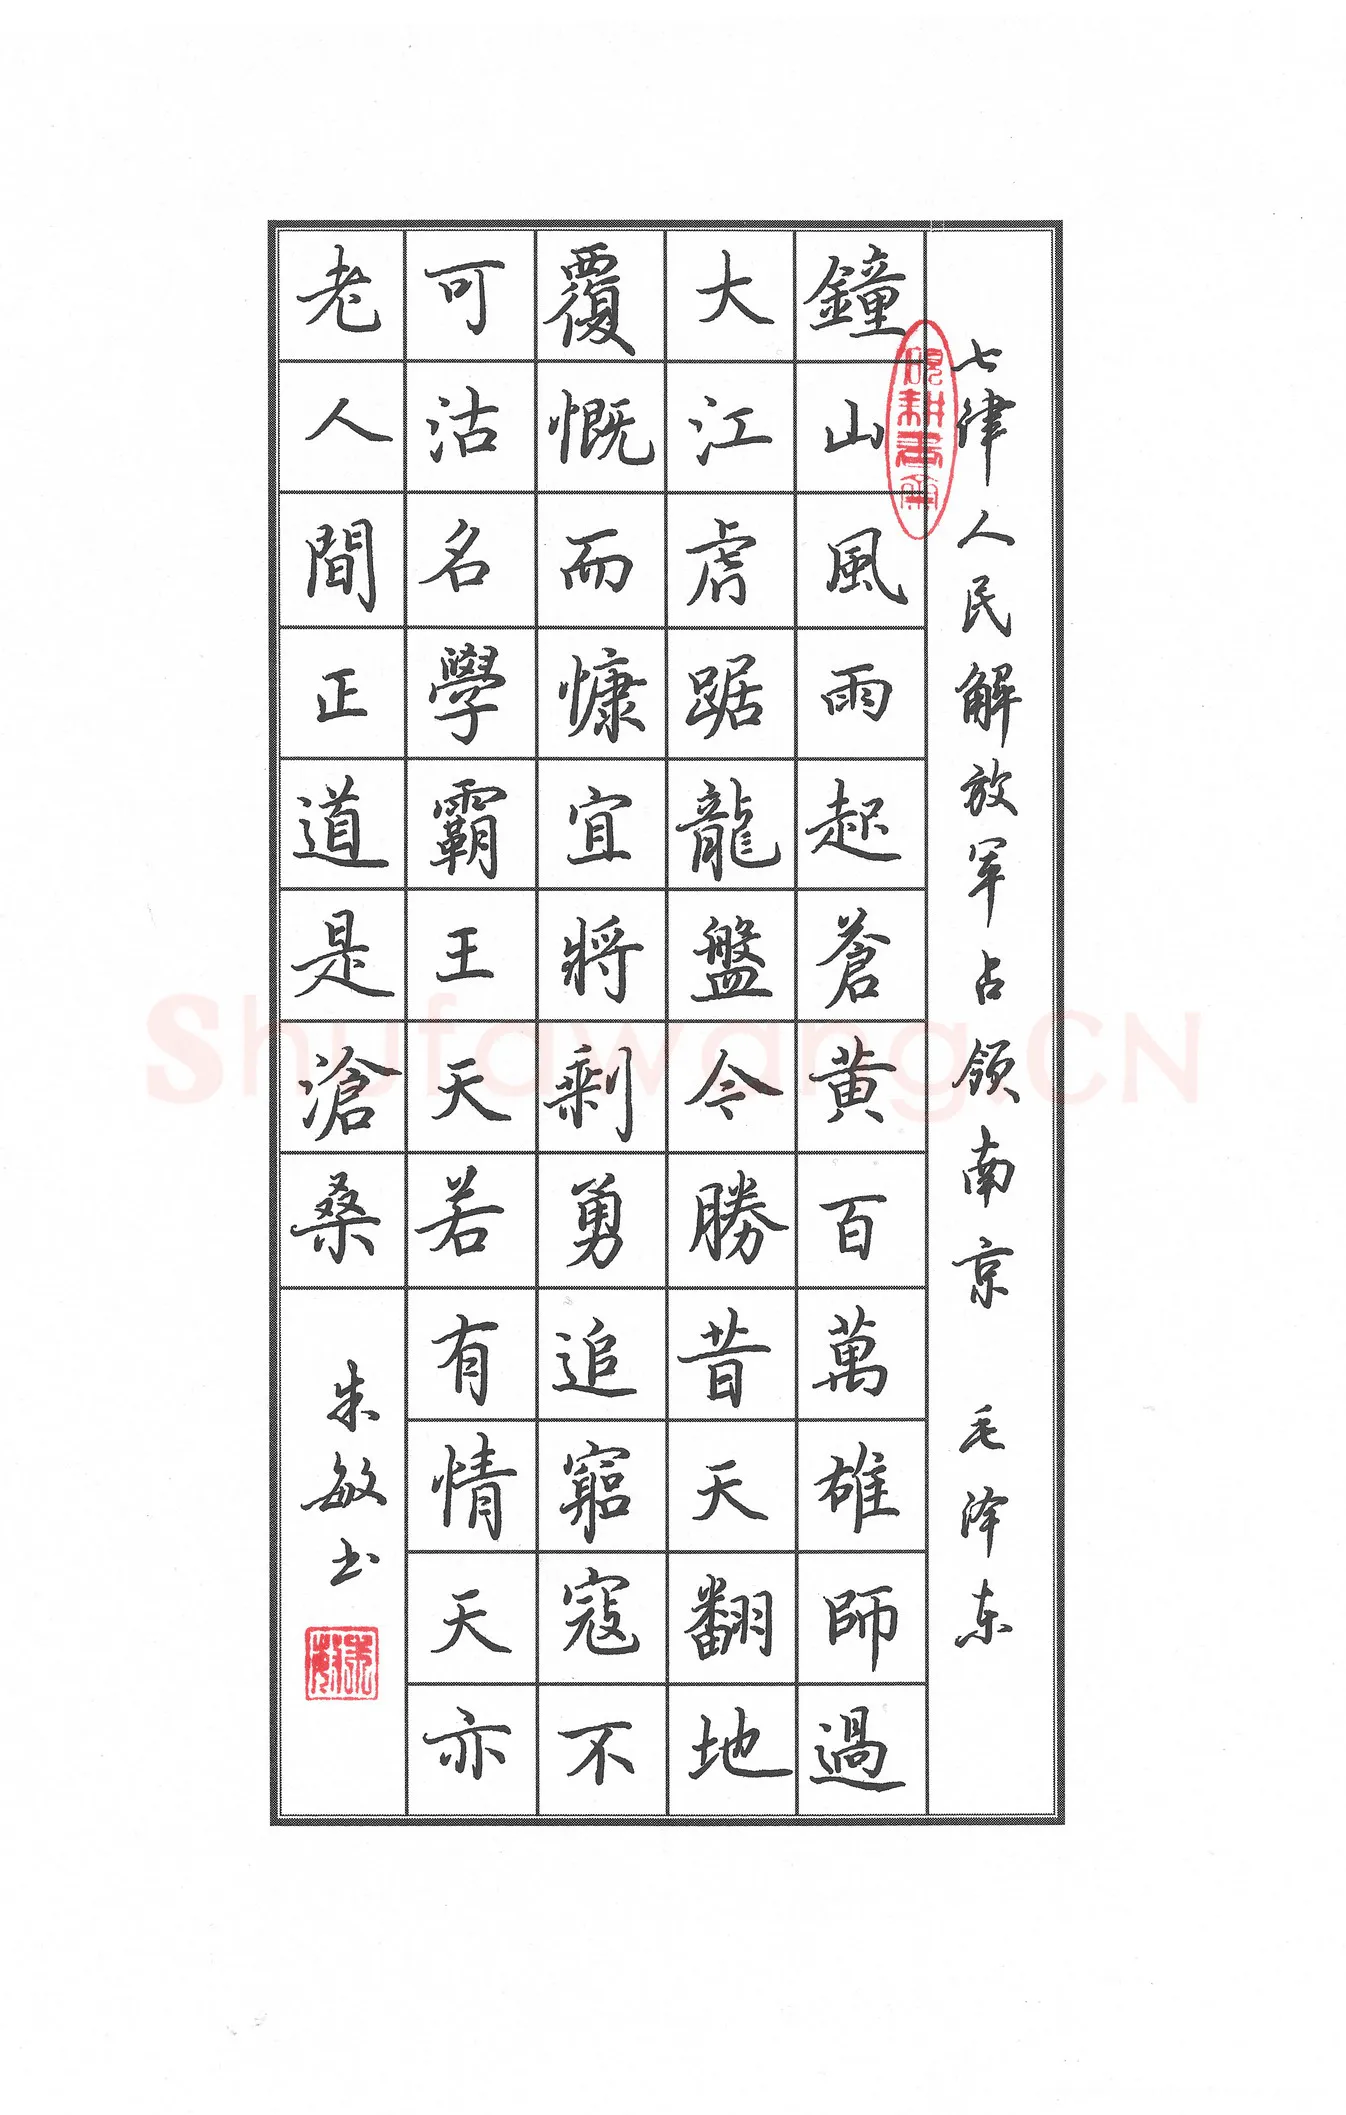 七律人民解放军占领南京 毛泽东
鐘山風雨起蒼黄百萬雄師過
大江虎踞龍盤今勝昔天翻地
覆慨而慷宜將剩勇追窮寇不
可沽名學霸王天若有情天亦
老人間正道是滄桑
朱敏书
砚耕书斋
朱敏
Shufawang.CN